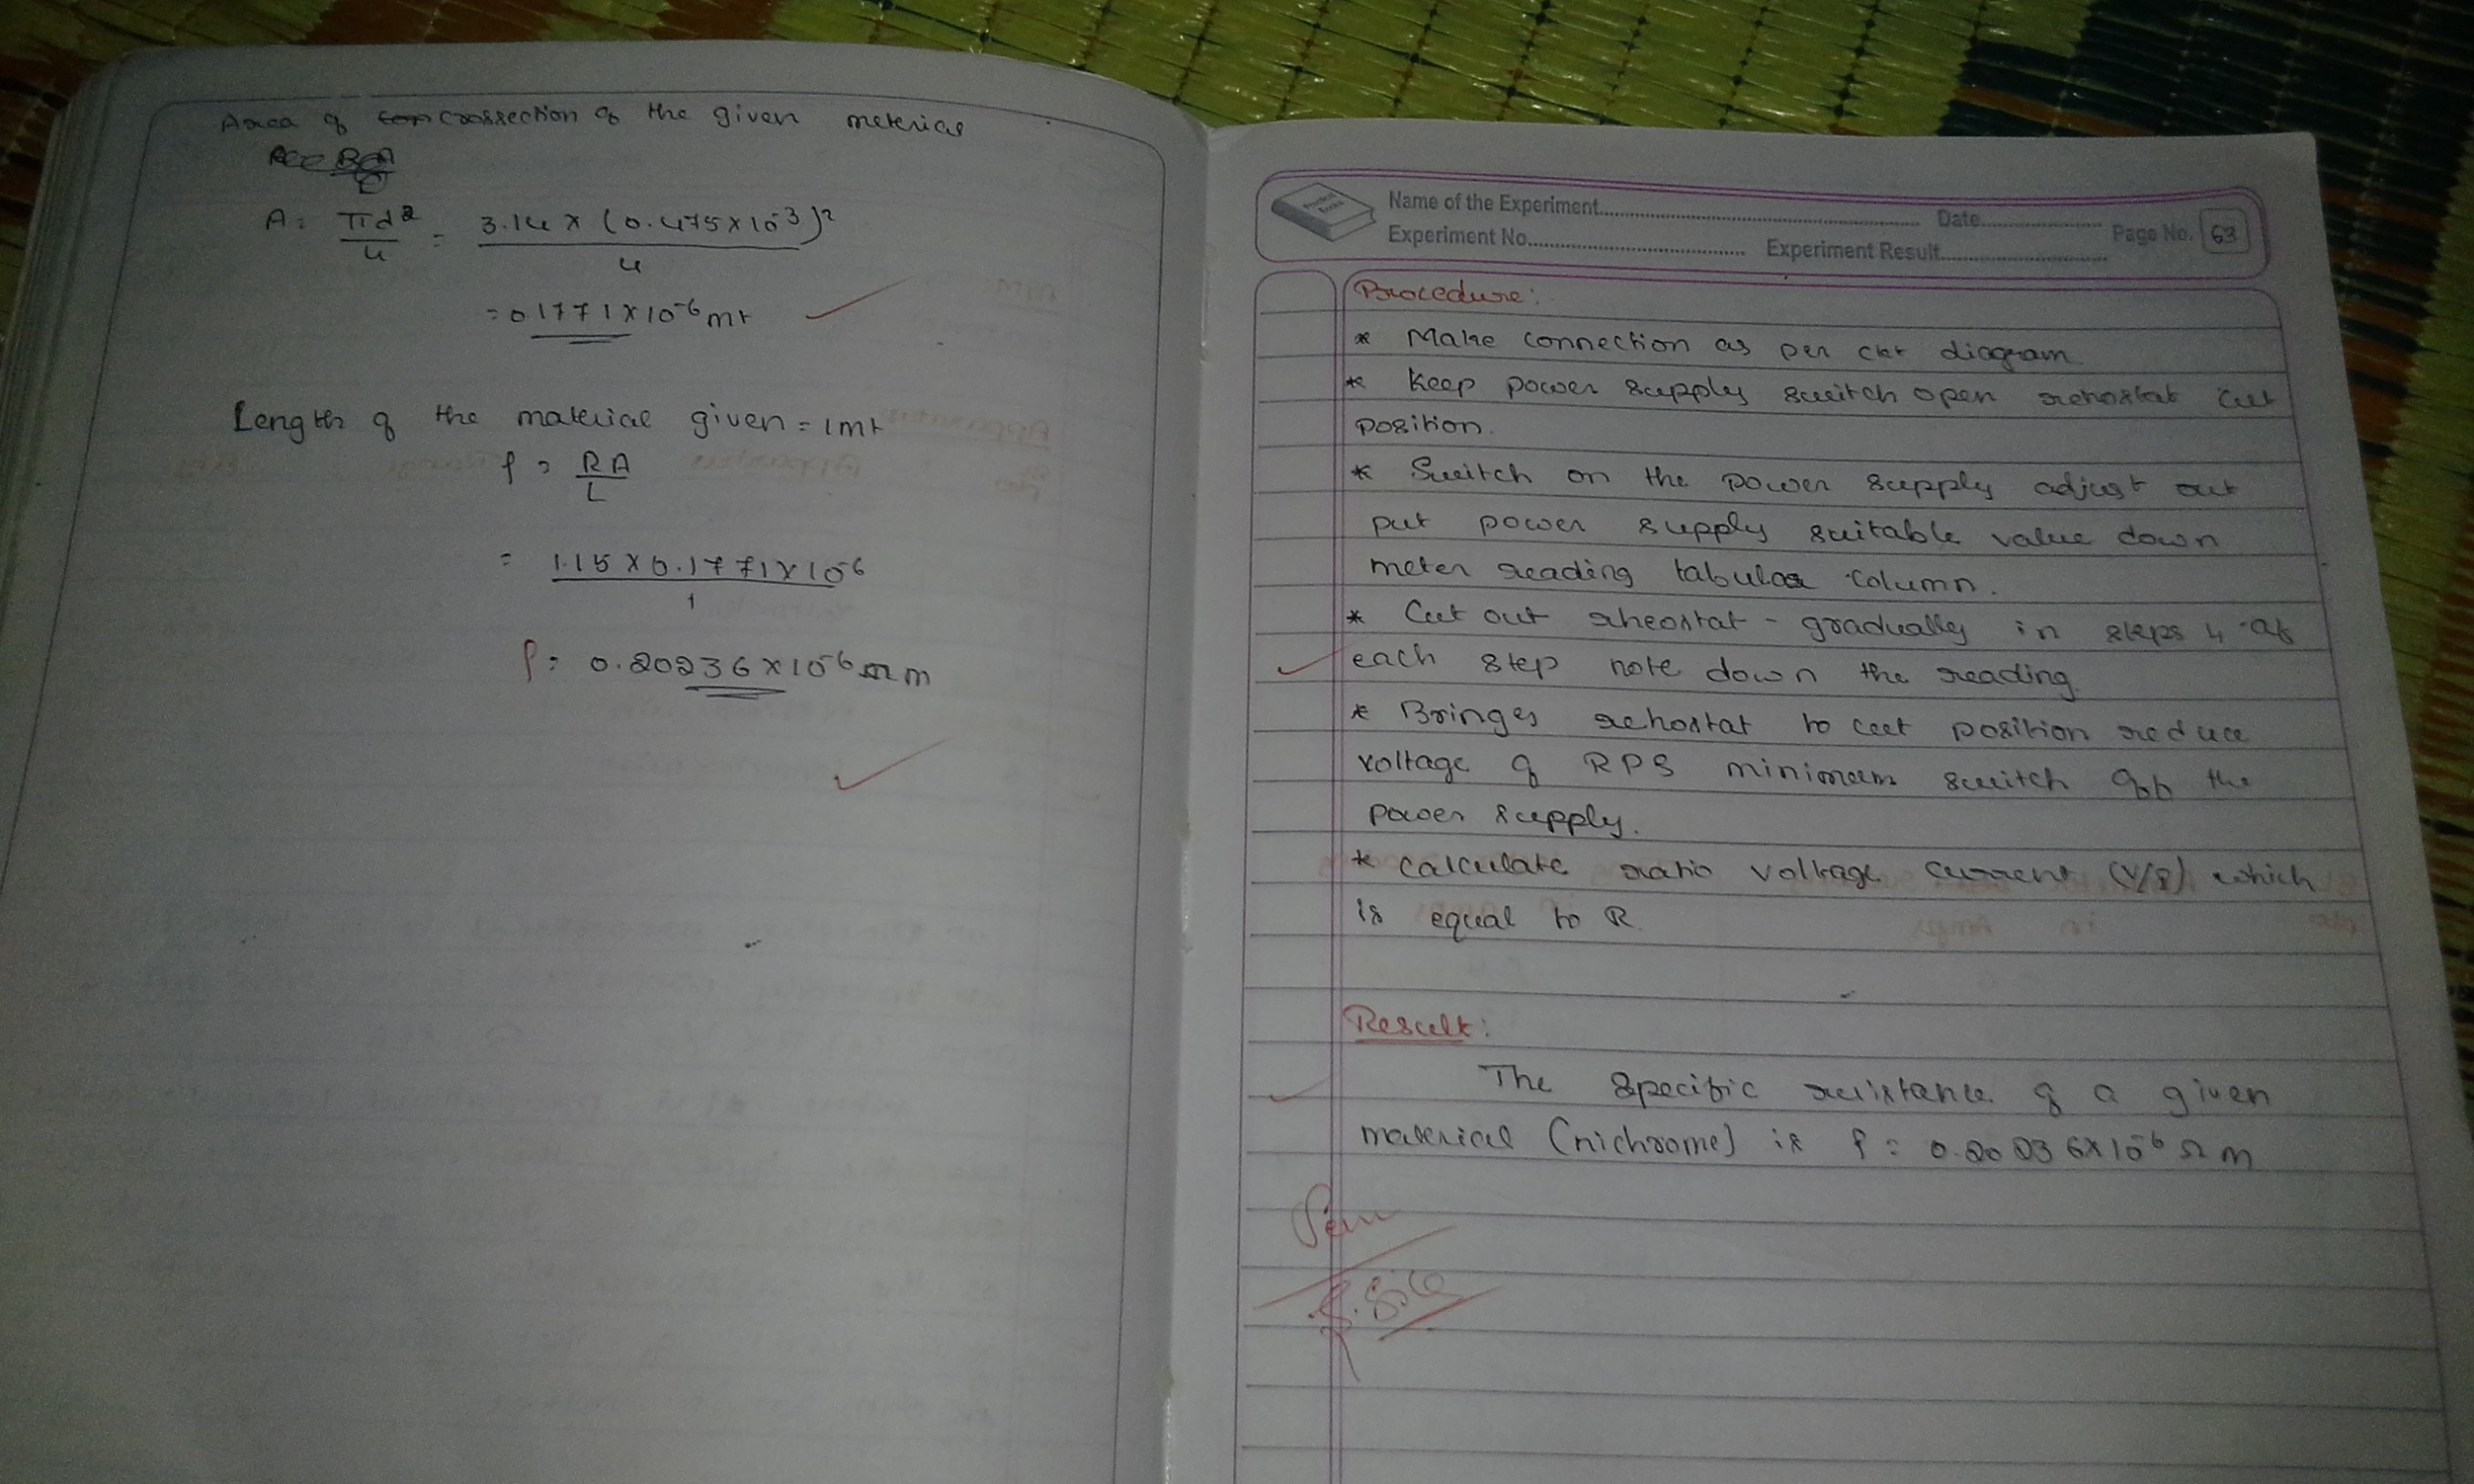 Area of crossection of the given meterial
A = πd²/4 = 3.14 x (0.475x10⁻³)²/4
= 0.1771x10⁻⁶ mt
Length of the material given = 1mt
ρ = RA/L
= 1.15 x 0.1771x10⁻⁶/1
ρ = 0.20236x10⁻⁶ Ω m
Name of the Experiment Date
Experiment No. Experiment Result Page No. 63
Procedure:
* Make connection as per ckt diagram.
* Keep power supply switch open rehostat cut
position.
* Switch on the power supply adjust out
put power supply suitable value down
meter reading tabular column.
* Cut out rheostat - gradually in steps 4 at
each step note down the reading.
* Bringes rehostat to cut position reduce
voltage of RPS minimum switch off the
power supply.
* Calculate ratio voltage current (V/I) which
is equal to R.
Result:
The specific resistance of a given
material (nichrome) is ρ = 0.20036x10⁻⁶ Ω m